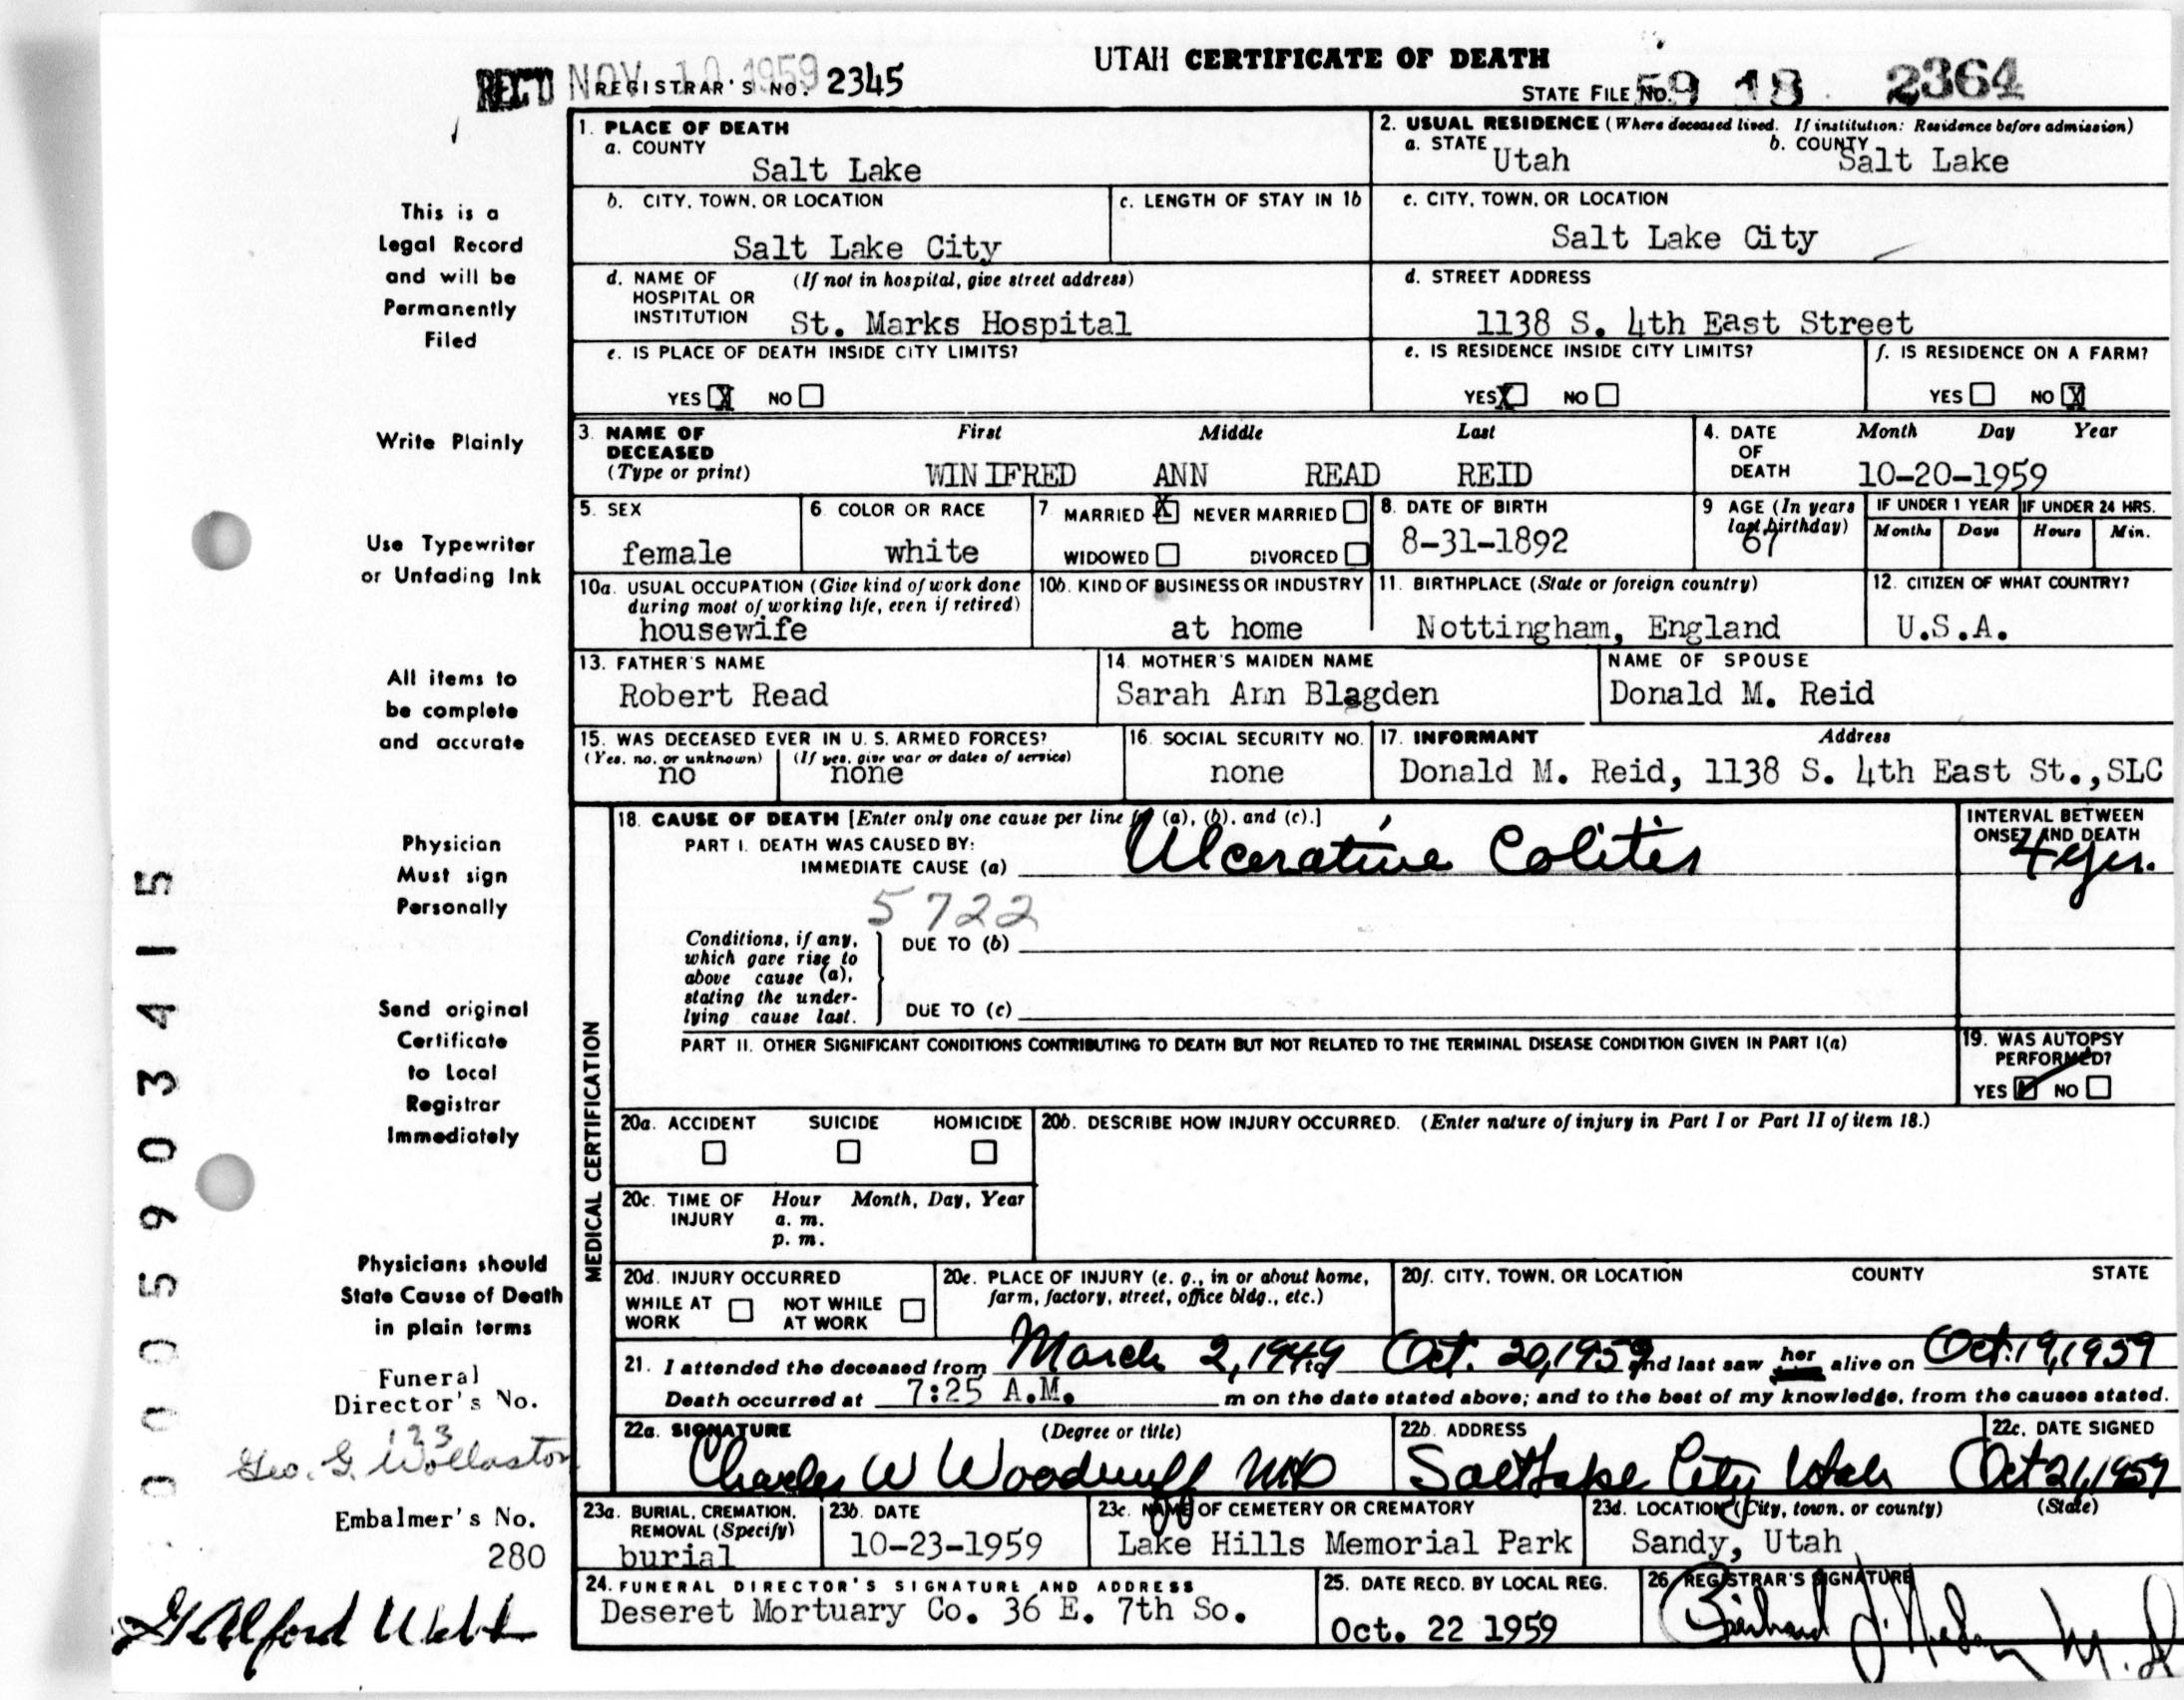 UTAH CERTIFICATE OF DEATH
REC'D NOV 10 1959 REGISTRAR'S NO. 2345
STATE FILE NO. 59 18 2364
1. PLACE OF DEATH
a. COUNTY
Salt Lake
2. USUAL RESIDENCE (Where deceased lived. If institution: Residence before admission)
a. STATE Utah b. COUNTY Salt Lake
b. CITY, TOWN, OR LOCATION
Salt Lake City
c. LENGTH OF STAY IN 1b
c. CITY, TOWN, OR LOCATION
Salt Lake City
d. NAME OF HOSPITAL OR INSTITUTION (If not in hospital, give street address)
St. Marks Hospital
d. STREET ADDRESS
1138 S. 4th East Street
e. IS PLACE OF DEATH INSIDE CITY LIMITS?
YES X NO
e. IS RESIDENCE INSIDE CITY LIMITS?
YES X NO
f. IS RESIDENCE ON A FARM?
YES NO X
3. NAME OF DECEASED (Type or print)
First Middle Last
WINIFRED ANN READ REID
4. DATE OF DEATH Month Day Year
10-20-1959
5. SEX
female
6 COLOR OR RACE
white
7 MARRIED X NEVER MARRIED
WIDOWED DIVORCED
8. DATE OF BIRTH
8-31-1892
9 AGE (In years last birthday)
67
IF UNDER 1 YEAR IF UNDER 24 HRS.
Months Days Hours Min.
10a. USUAL OCCUPATION (Give kind of work done during most of working life, even if retired)
housewife
10b. KIND OF BUSINESS OR INDUSTRY
at home
11. BIRTHPLACE (State or foreign country)
Nottingham, England
12. CITIZEN OF WHAT COUNTRY?
U.S.A.
13. FATHER'S NAME
Robert Read
14. MOTHER'S MAIDEN NAME
Sarah Ann Blagden
NAME OF SPOUSE
Donald M. Reid
15. WAS DECEASED EVER IN U. S. ARMED FORCES?
(Yes, no, or unknown) (If yes, give war or dates of service)
no none
16. SOCIAL SECURITY NO.
none
17. INFORMANT Address
Donald M. Reid, 1138 S. 4th East St.,SLC
MEDICAL CERTIFICATION
18. CAUSE OF DEATH [Enter only one cause per line (a), (b), and (c).]
PART I. DEATH WAS CAUSED BY:
IMMEDIATE CAUSE (a) Ulcerative Colitis
INTERVAL BETWEEN ONSET AND DEATH
4 yrs.
5722
Conditions, if any, which gave rise to above cause (a), stating the underlying cause last.
DUE TO (b)
DUE TO (c)
PART II. OTHER SIGNIFICANT CONDITIONS CONTRIBUTING TO DEATH BUT NOT RELATED TO THE TERMINAL DISEASE CONDITION GIVEN IN PART I(a)
19. WAS AUTOPSY PERFORMED?
YES NO
20a. ACCIDENT SUICIDE HOMICIDE
20b. DESCRIBE HOW INJURY OCCURRED. (Enter nature of injury in Part I or Part II of item 18.)
20c. TIME OF INJURY Hour Month, Day, Year
a. m.
p. m.
20d. INJURY OCCURRED
WHILE AT WORK NOT WHILE AT WORK
20e. PLACE OF INJURY (e. g., in or about home, farm, factory, street, office bldg., etc.)
20f. CITY, TOWN, OR LOCATION COUNTY STATE
21. I attended the deceased from March 2, 1949 to Oct. 20, 1959 and last saw her alive on Oct. 19, 1959
Death occurred at 7:25 A.M. m on the date stated above; and to the best of my knowledge, from the causes stated.
22a. SIGNATURE (Degree or title)
Charles W Woodruff MD
22b. ADDRESS
Salt Lake City Utah
22c. DATE SIGNED
Oct 21, 1959
23a. BURIAL, CREMATION, REMOVAL (Specify)
burial
23b. DATE
10-23-1959
23c. NAME OF CEMETERY OR CREMATORY
Lake Hills Memorial Park
23d. LOCATION (City, town, or county) (State)
Sandy, Utah
24. FUNERAL DIRECTOR'S SIGNATURE AND ADDRESS
Deseret Mortuary Co. 36 E. 7th So.
25. DATE RECD. BY LOCAL REG.
Oct. 22 1959
26 REGISTRAR'S SIGNATURE
This is a
Legal Record
and will be
Permanently
Filed
Write Plainly
Use Typewriter
or Unfading Ink
All items to
be complete
and accurate
Physician
Must sign
Personally
Send original
Certificate
to Local
Registrar
Immediately
Physicians should
State Cause of Death
in plain terms
Funeral
Director's No.
123
Geo. G. Wollaston
Embalmer's No.
280
G Alford Webb
0005903415